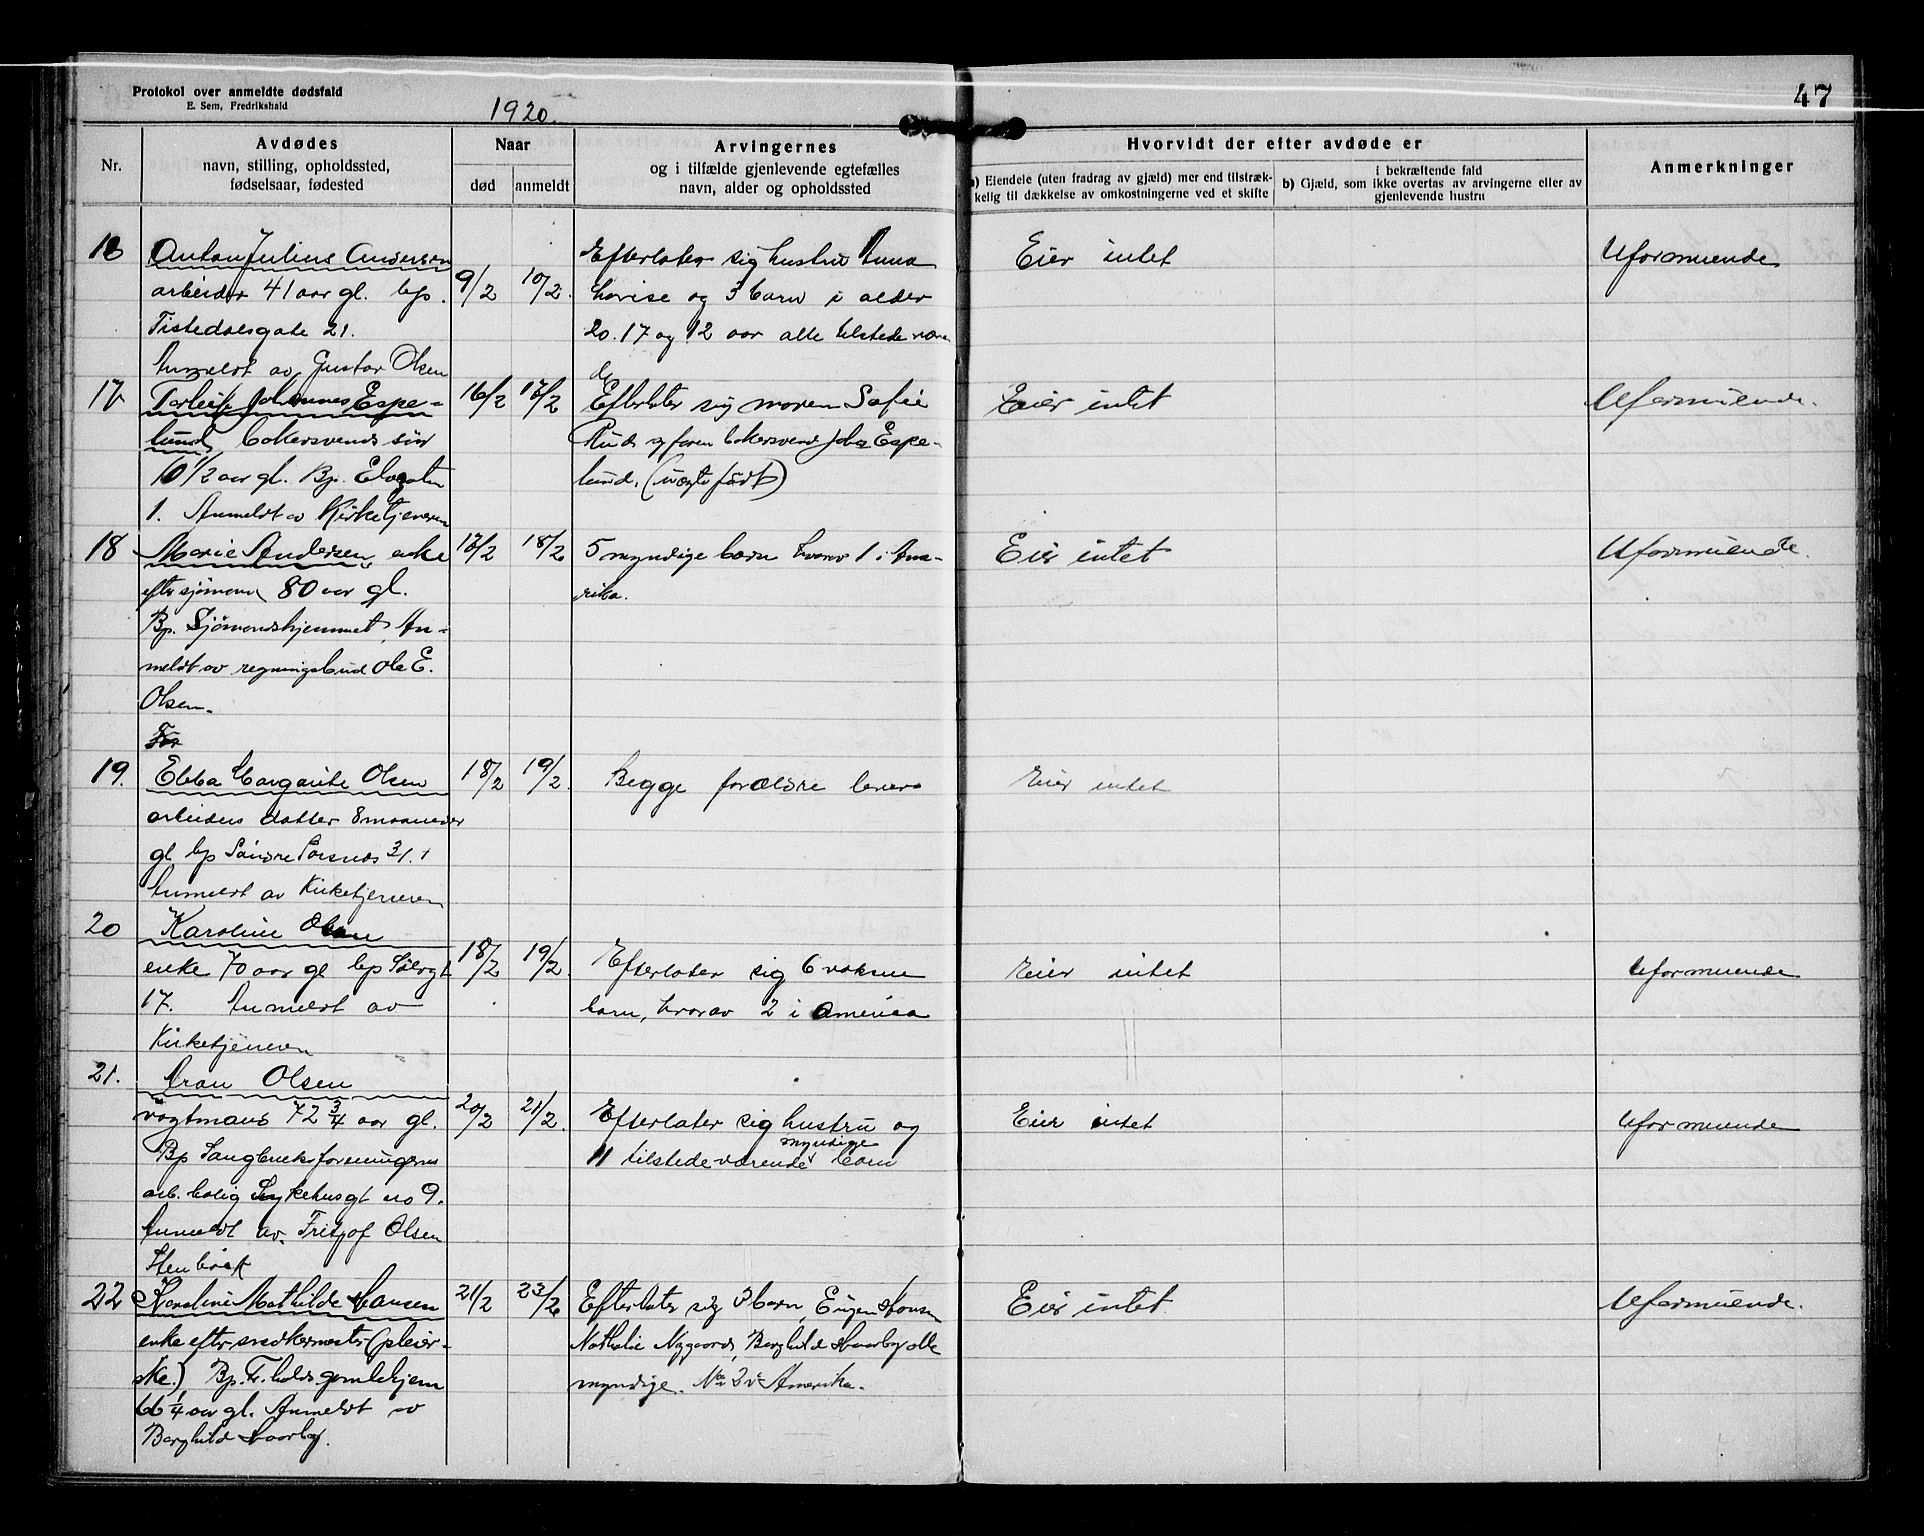 Protokol over anmeldte dødsfald
E. Sem, Fredrikshald
1920.
47
Nr.
Avdødes
navn, stilling, opholdssted,
fødselsaar, fødested
Naar
død
anmeldt
Arvingernes
og i tilfælde gjenlevende egtefælles
navn, alder og opholdssted
Hvorvidt der efter avdøde er
a) Eiendele (uten fradrag av gjæld) mer end tilstræk-
kelig til dækkelse av omkostningerne ved et skifte
i bekræftende fald
b) Gjæld, som ikke overtas av arvingerne eller av
gjenlevende hustru
Anmerkninger
16
Anton Julius Andersen
arbeider 41 aar gl. bp.
Tistedalsgate 21.
Anmeldt av Gustav Olsen
9/2
10/2.
Efterlater sig hustru Anna
Lovise og 3 barn i alder
20. 17 og 12 aar alle tilstedeværen
de
Eier intet
Uformuende
17
Johannes Espe-
lund bakersvends søn
10 1/2 aar gl. Bp. Elvegaten
1. Anmeldt av Kirketjeneren
16/2
17/2
Efterlater sig moren Sofie
Ruud og faren bakersvend Espe-
lund. (uegte født)
Eier intet
Uformuende.
18
Marie Andersen, enke
efter sjømand 80 aar gl.
Bp. Sjømandshjemmet. An-
meldt av regningsbud Ole E.
Olsen.
For
17/2
18/2
5 myndige barn hvorav 1 i Ame-
rika.
Eier intet
Uformuende.
19.
Ebba Margarite Olsen
arbeiders datter 8 maaneder
gl bp Søndre 31.1
Anmeldt av Kirketjeneren
18/2
19/2.
Begge forældre lever
Eier intet
20
Karoline Olsen
enke 70 aar gl bp
17. Anmeldt av
Kirketjeneren
18/2
19/2.
Efterlater sig 6 voksne
barn, hvorav 2 i America
Eier intet
Uformuende
21.
Aron Olsen
vægtmand 72 3/4 aar gl.
Bp
arb. bolig Sykehusgt no 9.
Anmeldt av. Fritjof Olsen
20/2
21/2.
Efterlater sig hustru og
myndige
11 tilstedeværende barn
Eier intet
Uformuende
22
Karoline Mathilde Hansen
enke efter snedkermester (pleier-
ske.) Bp. Fr.halds gamlehjem
66 1/4 aar gl. Anmeldt av
Borghild
21/2
23/2
Efterlater sig 3 barn, Eugen Hansen
Nathalie Nygaard, Borghild alle
myndige. No 2 i Amerika.
Eier intet.
Uformuende.